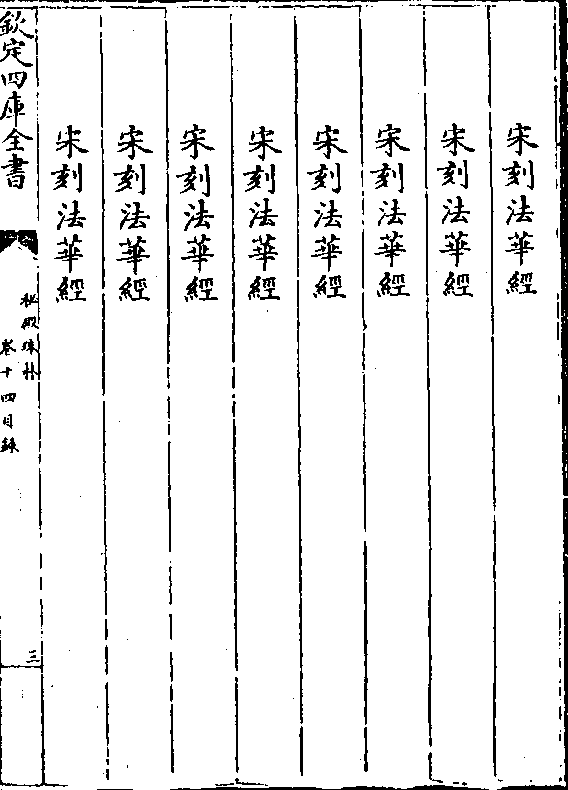 宋刻法華經
宋刻法華經
宋刻法華經
宋刻法華經
宋刻法華經
宋刻法華經
宋刻法華經
宋刻法華經
欽定四庫全書
秘殿珠林
卷十四目錄
三